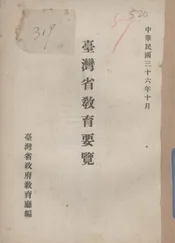 中華民國三十六年十月
臺灣省教育要覽
臺灣省政府教育廳編
319